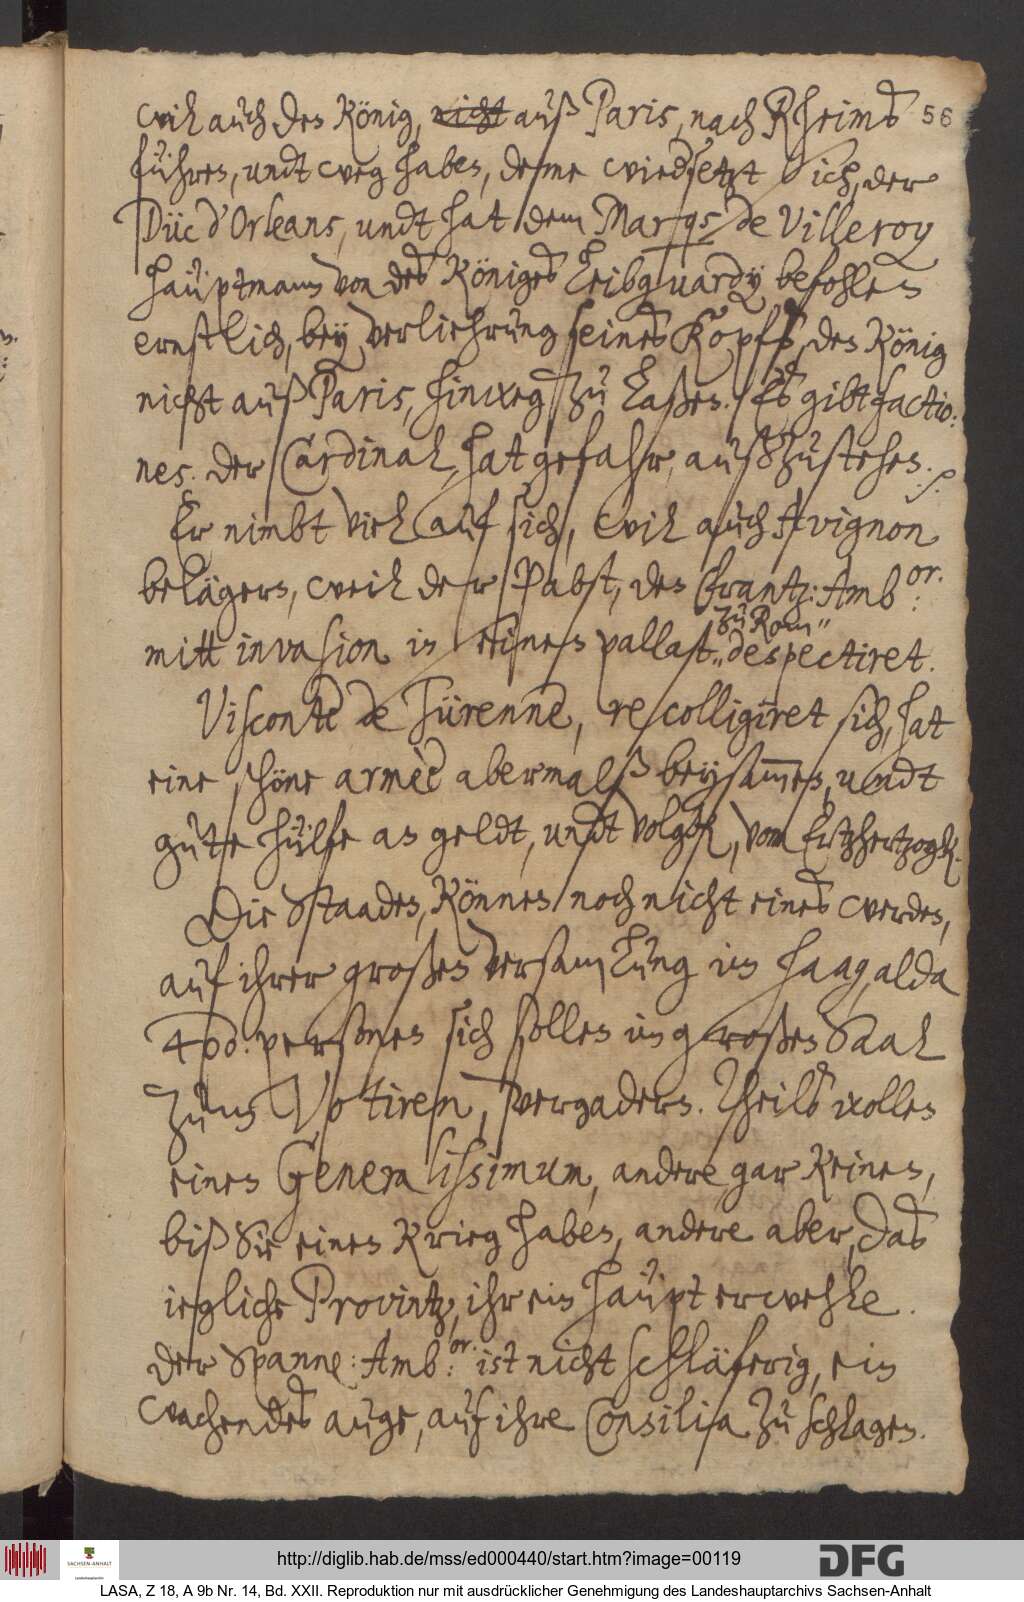 will auch den König, nicht auß Paris, nach Rheims 56
führen, undt weg haben, deme wiedersetzt Sich, der
Düc d'Orleans, undt hat dem Marq.s de Villeroy
Haüptmann von des Königes Leibguardy befohlen
ernstlich, bey verliehrung seines Kopfs, den König
nicht auß Paris, hinweg zu laßen. Es gibt factio:
nes. der Cardinal, hat gefahr, außzustehen. ./.
Er nimbt viel auf sich, will auch Avignon
belägern, weil der Pabst, den Frantz: Amb:or.
mitt invasion in seinen pallast „zu Rom„ despectiret.
Visconte de Türenne, recolligiret sich, hat
eine schöne armèe abermalß beysammen, undt
gute hülfe an geldt, undt volgk, vom Ertzhertzogk.
Die Staaden, können noch nicht eines werden,
auf ihrer großen versamlung im Haag, alda
400. personen sich sollen im großen Saal
zum Votiren, vergadern. Theils wollen
einen Generalissimum, andere gar keinen,
biß Sie einen Krieg haben, andere aber, das
iegliche Provintz, ihr ein haüpt erwehle.
der Spanne: Amb:or. ist nicht schläferig, ein
wachendes auge, auf ihre Consilia zu schlagen.
http://diglib.hab.de/mss/ed000440/start.htm?image=00119
DFG
SACHSEN-ANHALT
LASA, Z 18, A 9b Nr. 14, Bd. XXII. Reproduktion nur mit ausdrücklicher Genehmigung des Landeshauptarchivs Sachsen-Anhalt